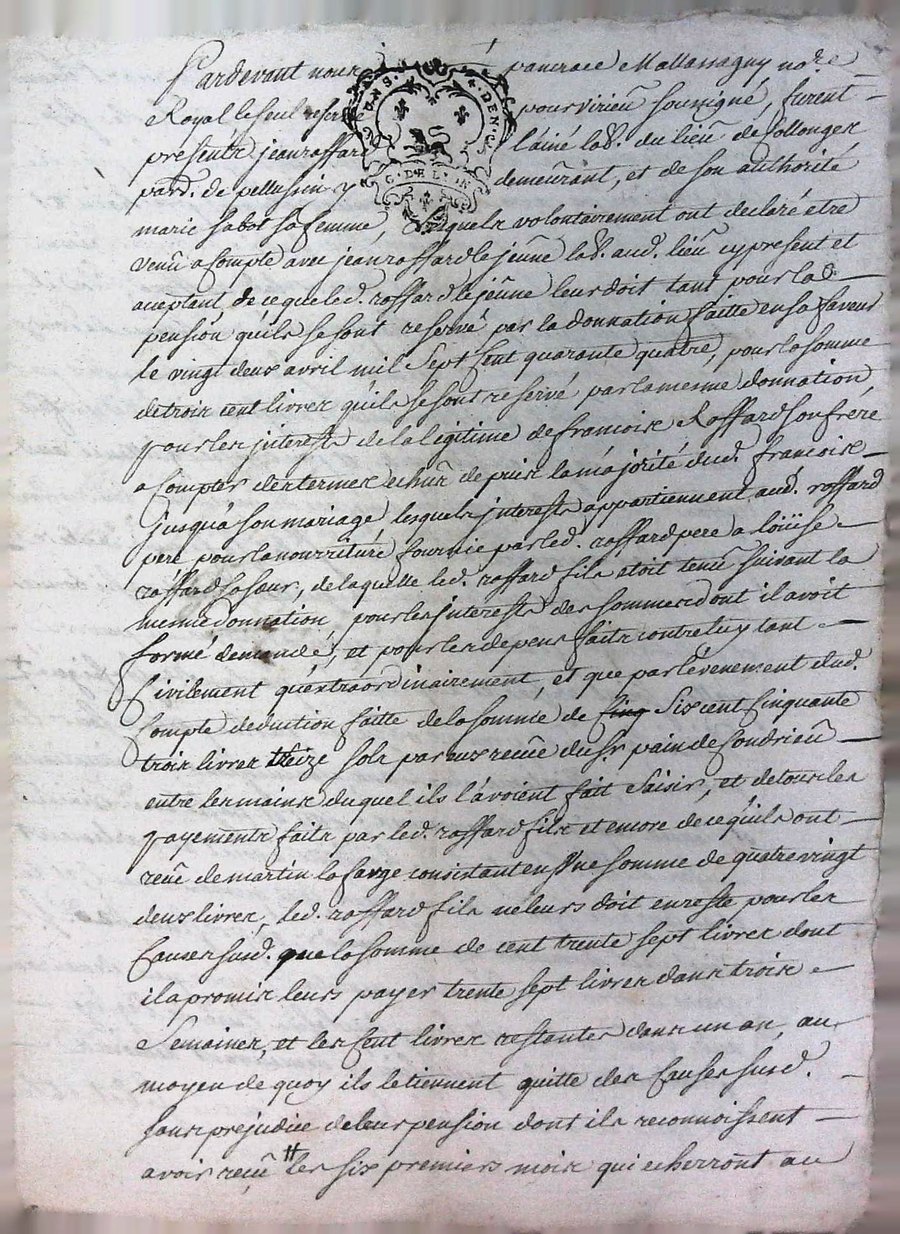 Pardevant nous pancrace Mallassagny no.re
Royal le seul reservé pour virieu soussigné, furent
présents jean raffard l'ainé lab.r du lieu de Collonges
parr. de pellussin y demeurant, et de son authorité
marie sabot sa femme, lesquels volontairement ont declaré etre
venu a compte avec jean raffard le jeûne lab.r aud. lieu cy present et
aceptant de ce que led. raffard le jeûne leur doit tant pour la
pension qu'ils se sont reservé par la donnation faitte en sa faveur
le vingt deux avril mil sept cent quarante quatre, pour la somme
de trois cent livres qu'ils se sont reservé par la meme donnation,
pour les jnterests de la legitime de francois Raffard son frere
a compter des termes echus depuis la majorité dud. francois
jusqu'a son mariage lesquels jnterests appartiennent aud. raffard
pere pour la nourriture fournie par led. raffard pere a loüise
raffard sa sœur, de laquelle led. raffard fils etoit tenu suivant la
meme donnation pour les jnterests des sommes dont il avoit
formé demande, et pour les depens faits contre luy tant
civilement qu'extraordinairement, et que par l'évenement dud.
compte deduction faitte de la somme de cinq six cent cinquante
trois livres treize sols par eux receüe du s.r pain de Condrieu
entre les mains duquel ils l'avoient fait saisir, et de tous les
payements faits par led. raffard fils et encore de ce qu'ils ont
reçu de martin la farge consistant en une somme de quatre vingt
deux livres, led. raffard fils ne leurs doit en reste pour les
causes susd. que la somme de cent trente sept livres dont
il a promis leurs payer trente sept livres dans trois
semaines, et les cent livres restantes dans un an, au
moyen de quoy ils le tiennent quitte des causes susd.
sans prejudice de leur pension dont ils reconnoissent
avoir reçu les six premiers mois qui echerront au
G. DE LYON